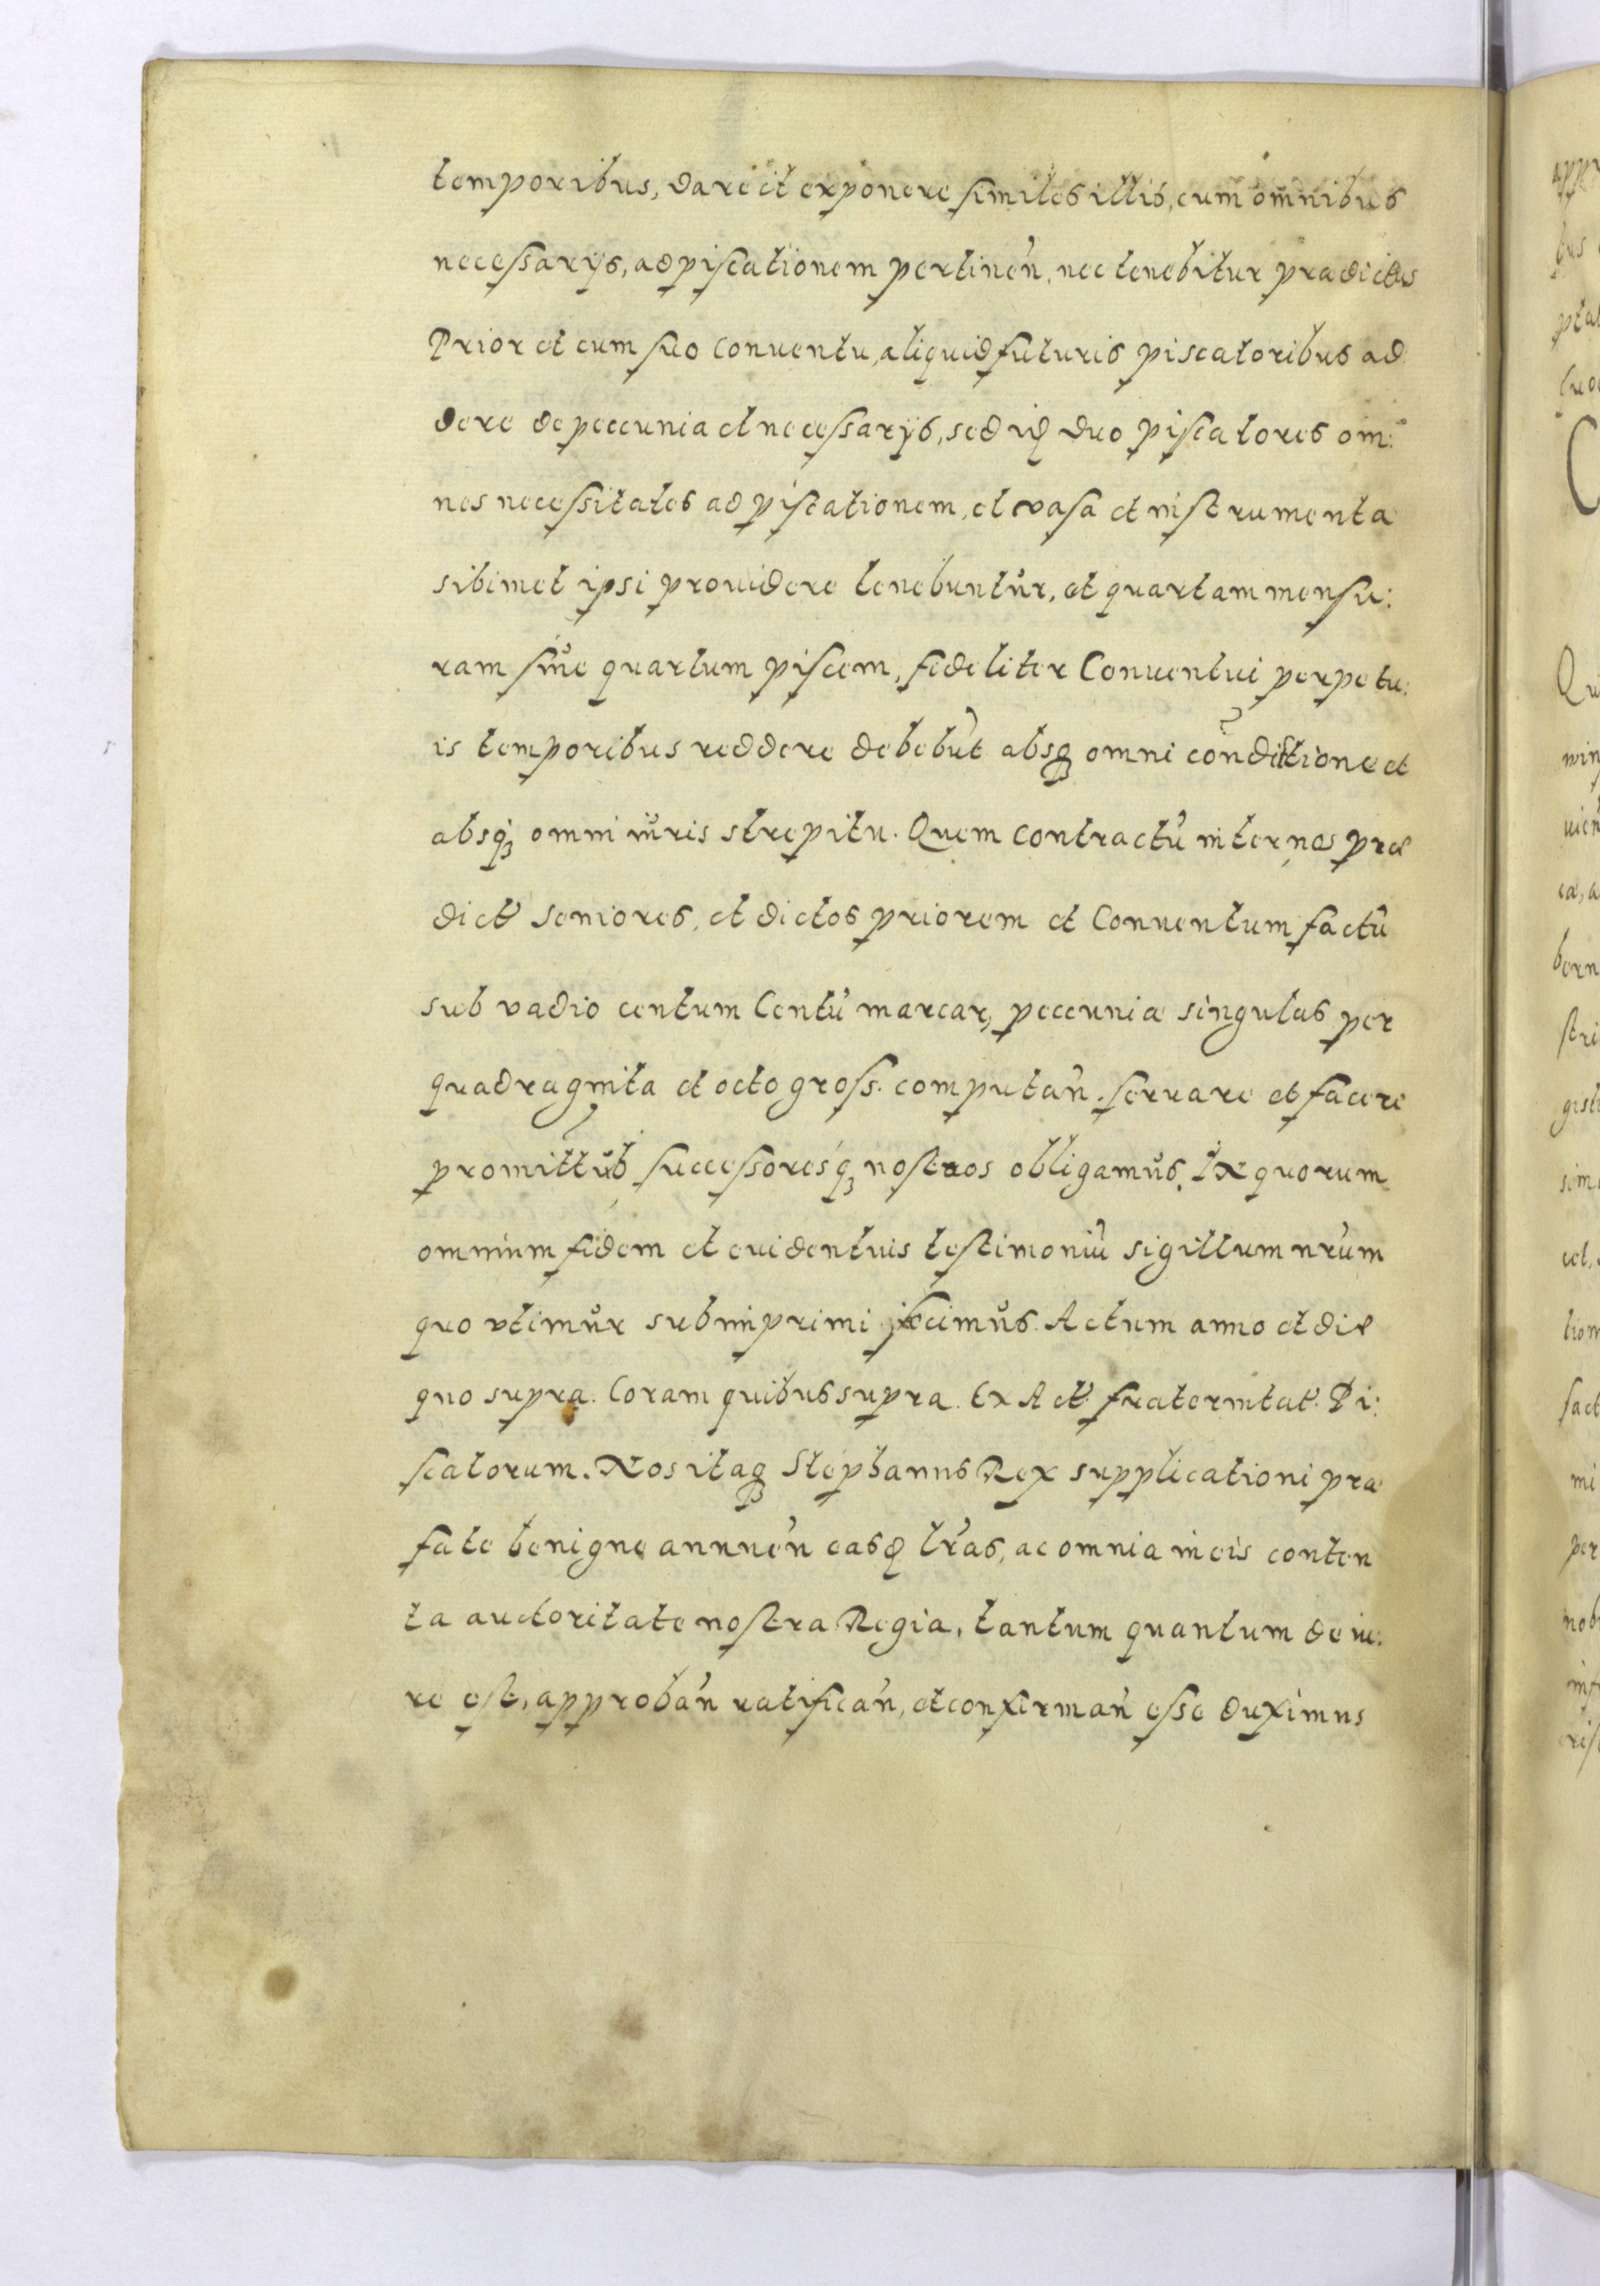 temporibus, dare et exponere similes illis, cum omnibus
necessarijs, ad piscationem pertineñ, nec tenebitur prædictus
Prior et cum suo Conuentu, aliquid futuris piscatoribus ad
dere de peccunia et necessarijs, sed ijdē duo piscatores om:
nes necessitates ad piscationem, et vasa et instrumenta
sibimet ipsi prouidere tenebuntur, et quartam mensu:
ram siue quartum piscem, fideliter Conuentui perpetu:
is temporibus reddere debebūt absq̨ omni conditione et
absq̨ omni iuris strepitu. Quem contractū inter nos præ
dict̃ seniores, et dictos priorem et Conuentum factū
sub vadio centum Centū marcar, peccuniæ singulas per
quadraginta et octo gross. computañ. seruare et facere
promittīs successoresq̨ nostros obligamus. In quorum
omnium fidem et euidentius testimoniū sigillum nrūm
quo vtimur subimprimi fecimus. Actum anno et die
quo supra. Coram quibus supra. Ex Act̃ fraternitat̃. Pi:
scatorum. Nos itaq̨ Stephanus Rex supplicationi præ
fatæ benigne annueñ easdē lrās, ac omnia in eis conten
ta auctoritate nostra Regia, tantum quantum de iu:
re est, approbañ ratificañ, et confirmañ esse duximus
appr
bus
ptat
luo
C
Qu
min
uien
ca, a
bern
stri
gist
sim
uel.
tion
fact
mi
per
nob
inf